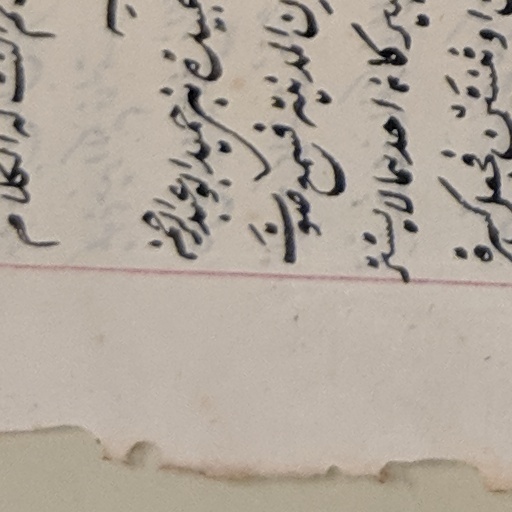 ثم النت له الكلام
عبيدة بن حميد ابو عبد الرحمن
ن المدينة فسمع صوت
بير كان احدهما لا يستتر
او ثنتين فجعل كسرة